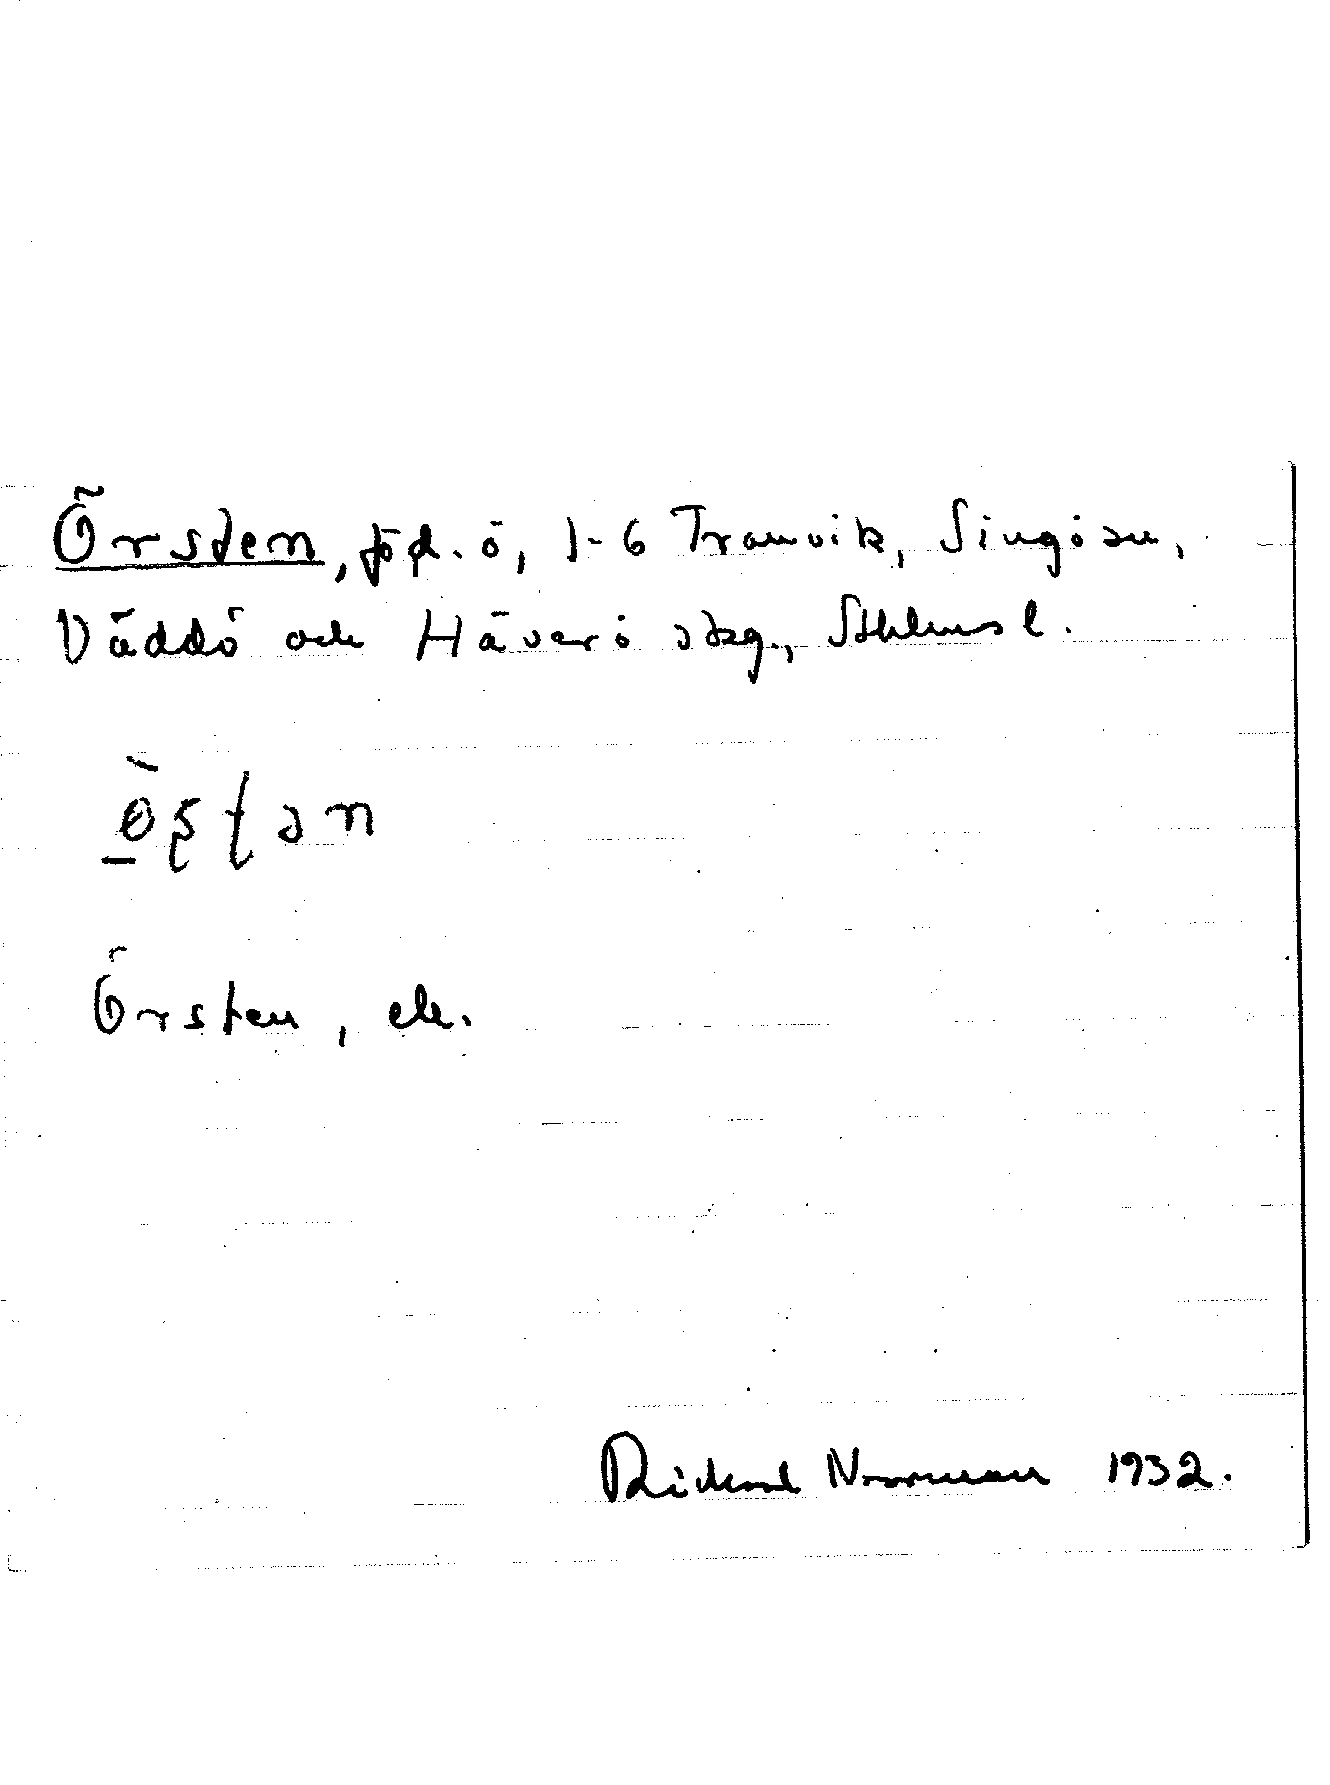 Örsten, jod. ö, 1-6 Tranvik, Singö sn,
Väddö och Häverö skg., Sthlms l.
Örsten, ek.
Rickard Norrman 1932.